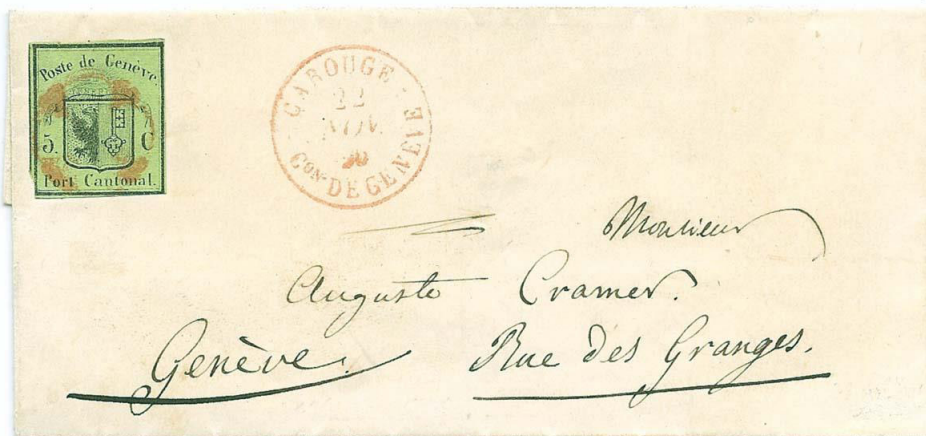 Poste de Genève.
5. C
Port Cantonal.
CAROUGE
22
NOV.
50
Con DE GENÈVE
Monsieur
Auguste Cramer.
Genève. Rue des Granges.